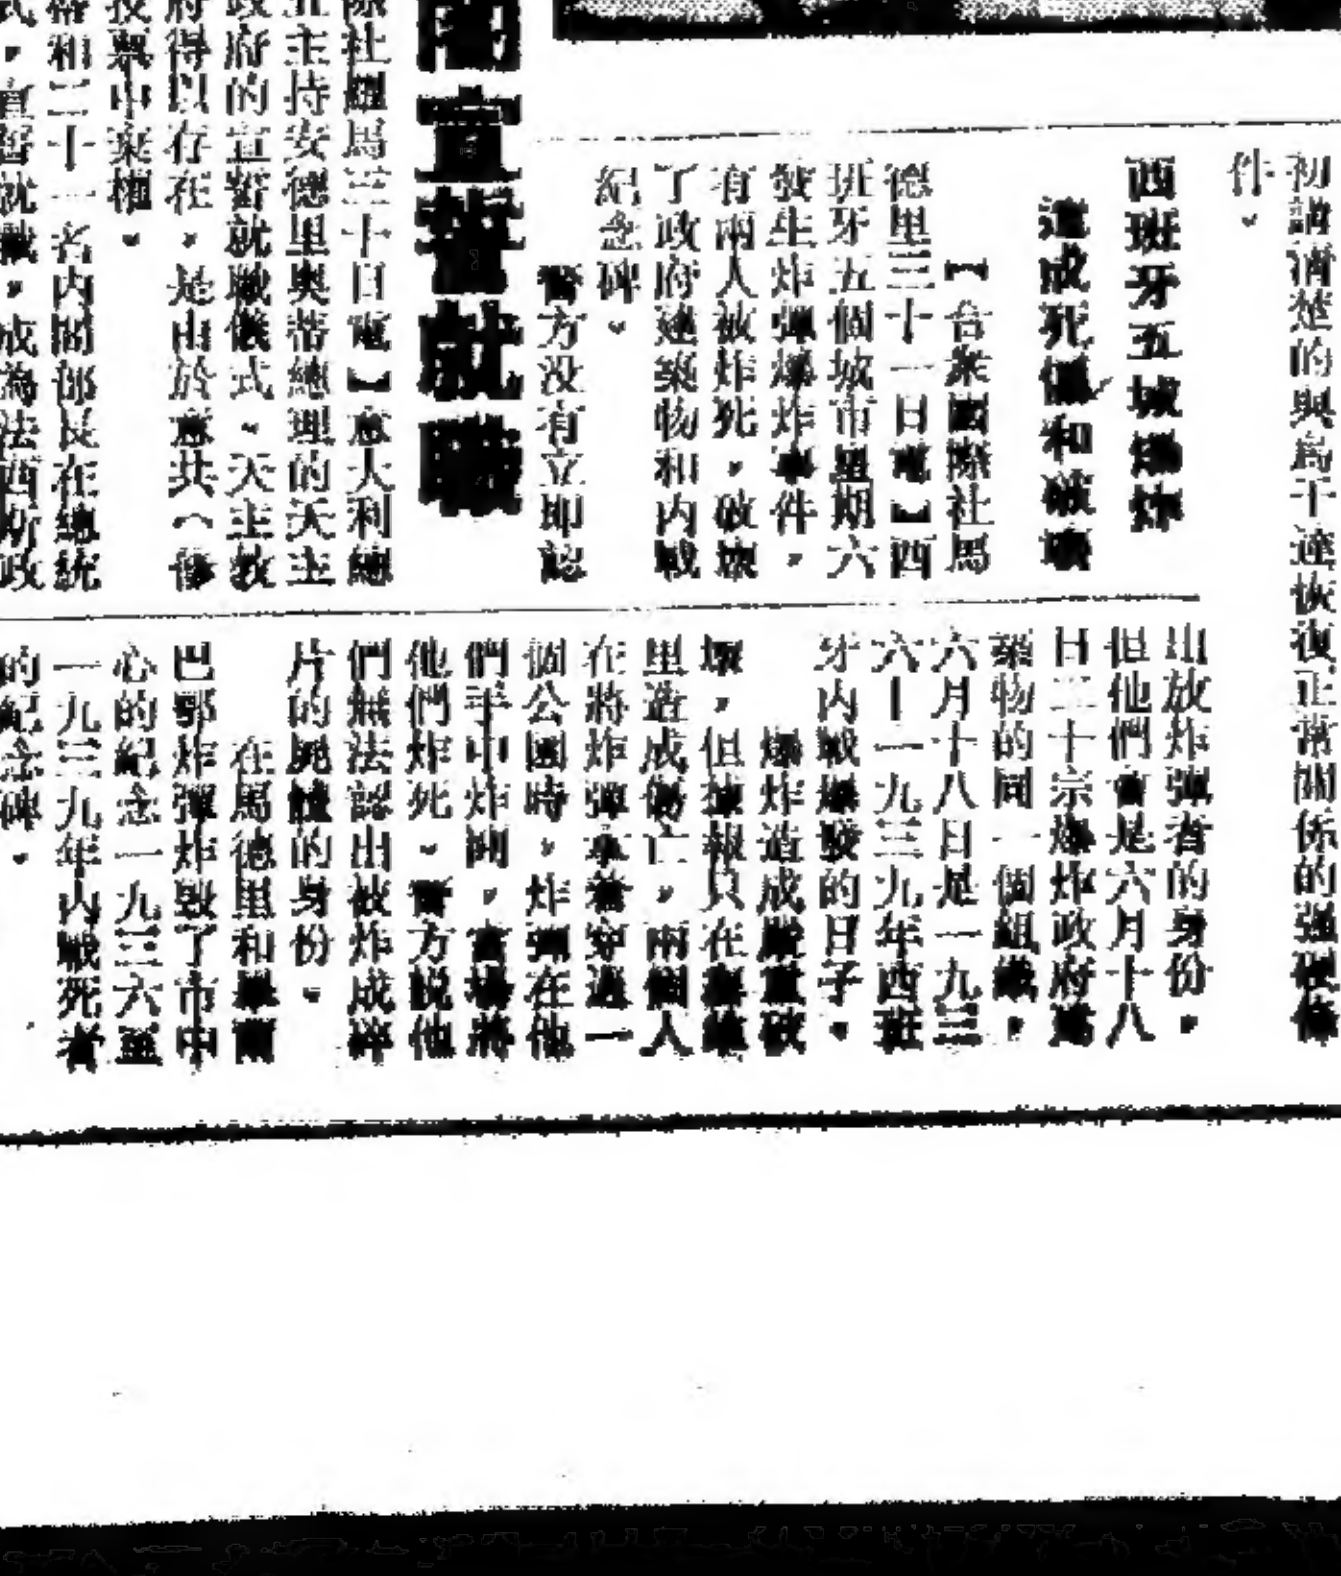 初講清楚的與烏干達恢復正常關係的
件。
西班牙五城爆炸
造成死傷和破壞
【合衆國際社馬
德里三十一日電】西
班牙五個城市星期六
發生炸彈爆炸事件，
有兩人被炸死，破壞
了政府建築物和內戰
紀念碑。
警方没有立即認
出放炸彈者的身份，
但他們會是六月十八
日二十宗爆炸政府建
築物的同一個組織，
六月十八日是一九三
六—一九三九年西班
牙內戰爆發的日子。
爆炸造成嚴重破
壞，但據報只在馬德
里造成傷亡，兩個人
在將炸彈拿着穿過一
個公園時，炸彈在他
們手中炸開，當場將
他們炸死。警方説他
們無法認出被炸成碎
片的屍體的身份。
在馬德里和畢爾
巴鄂炸彈炸毀了市中
心的紀念一九三六至
一九三九年內戰死者
的紀念碑。
閣宣誓就職
際社羅馬三十日電】意大利總
主持安德里奧蒂總理的天主
政府的宣誓就職儀式。天主教
府得以存在，是由於意共（修
投票中棄權。
蒂和二十一名內閣部長在總統
式，宣誓就職，成為法西斯政